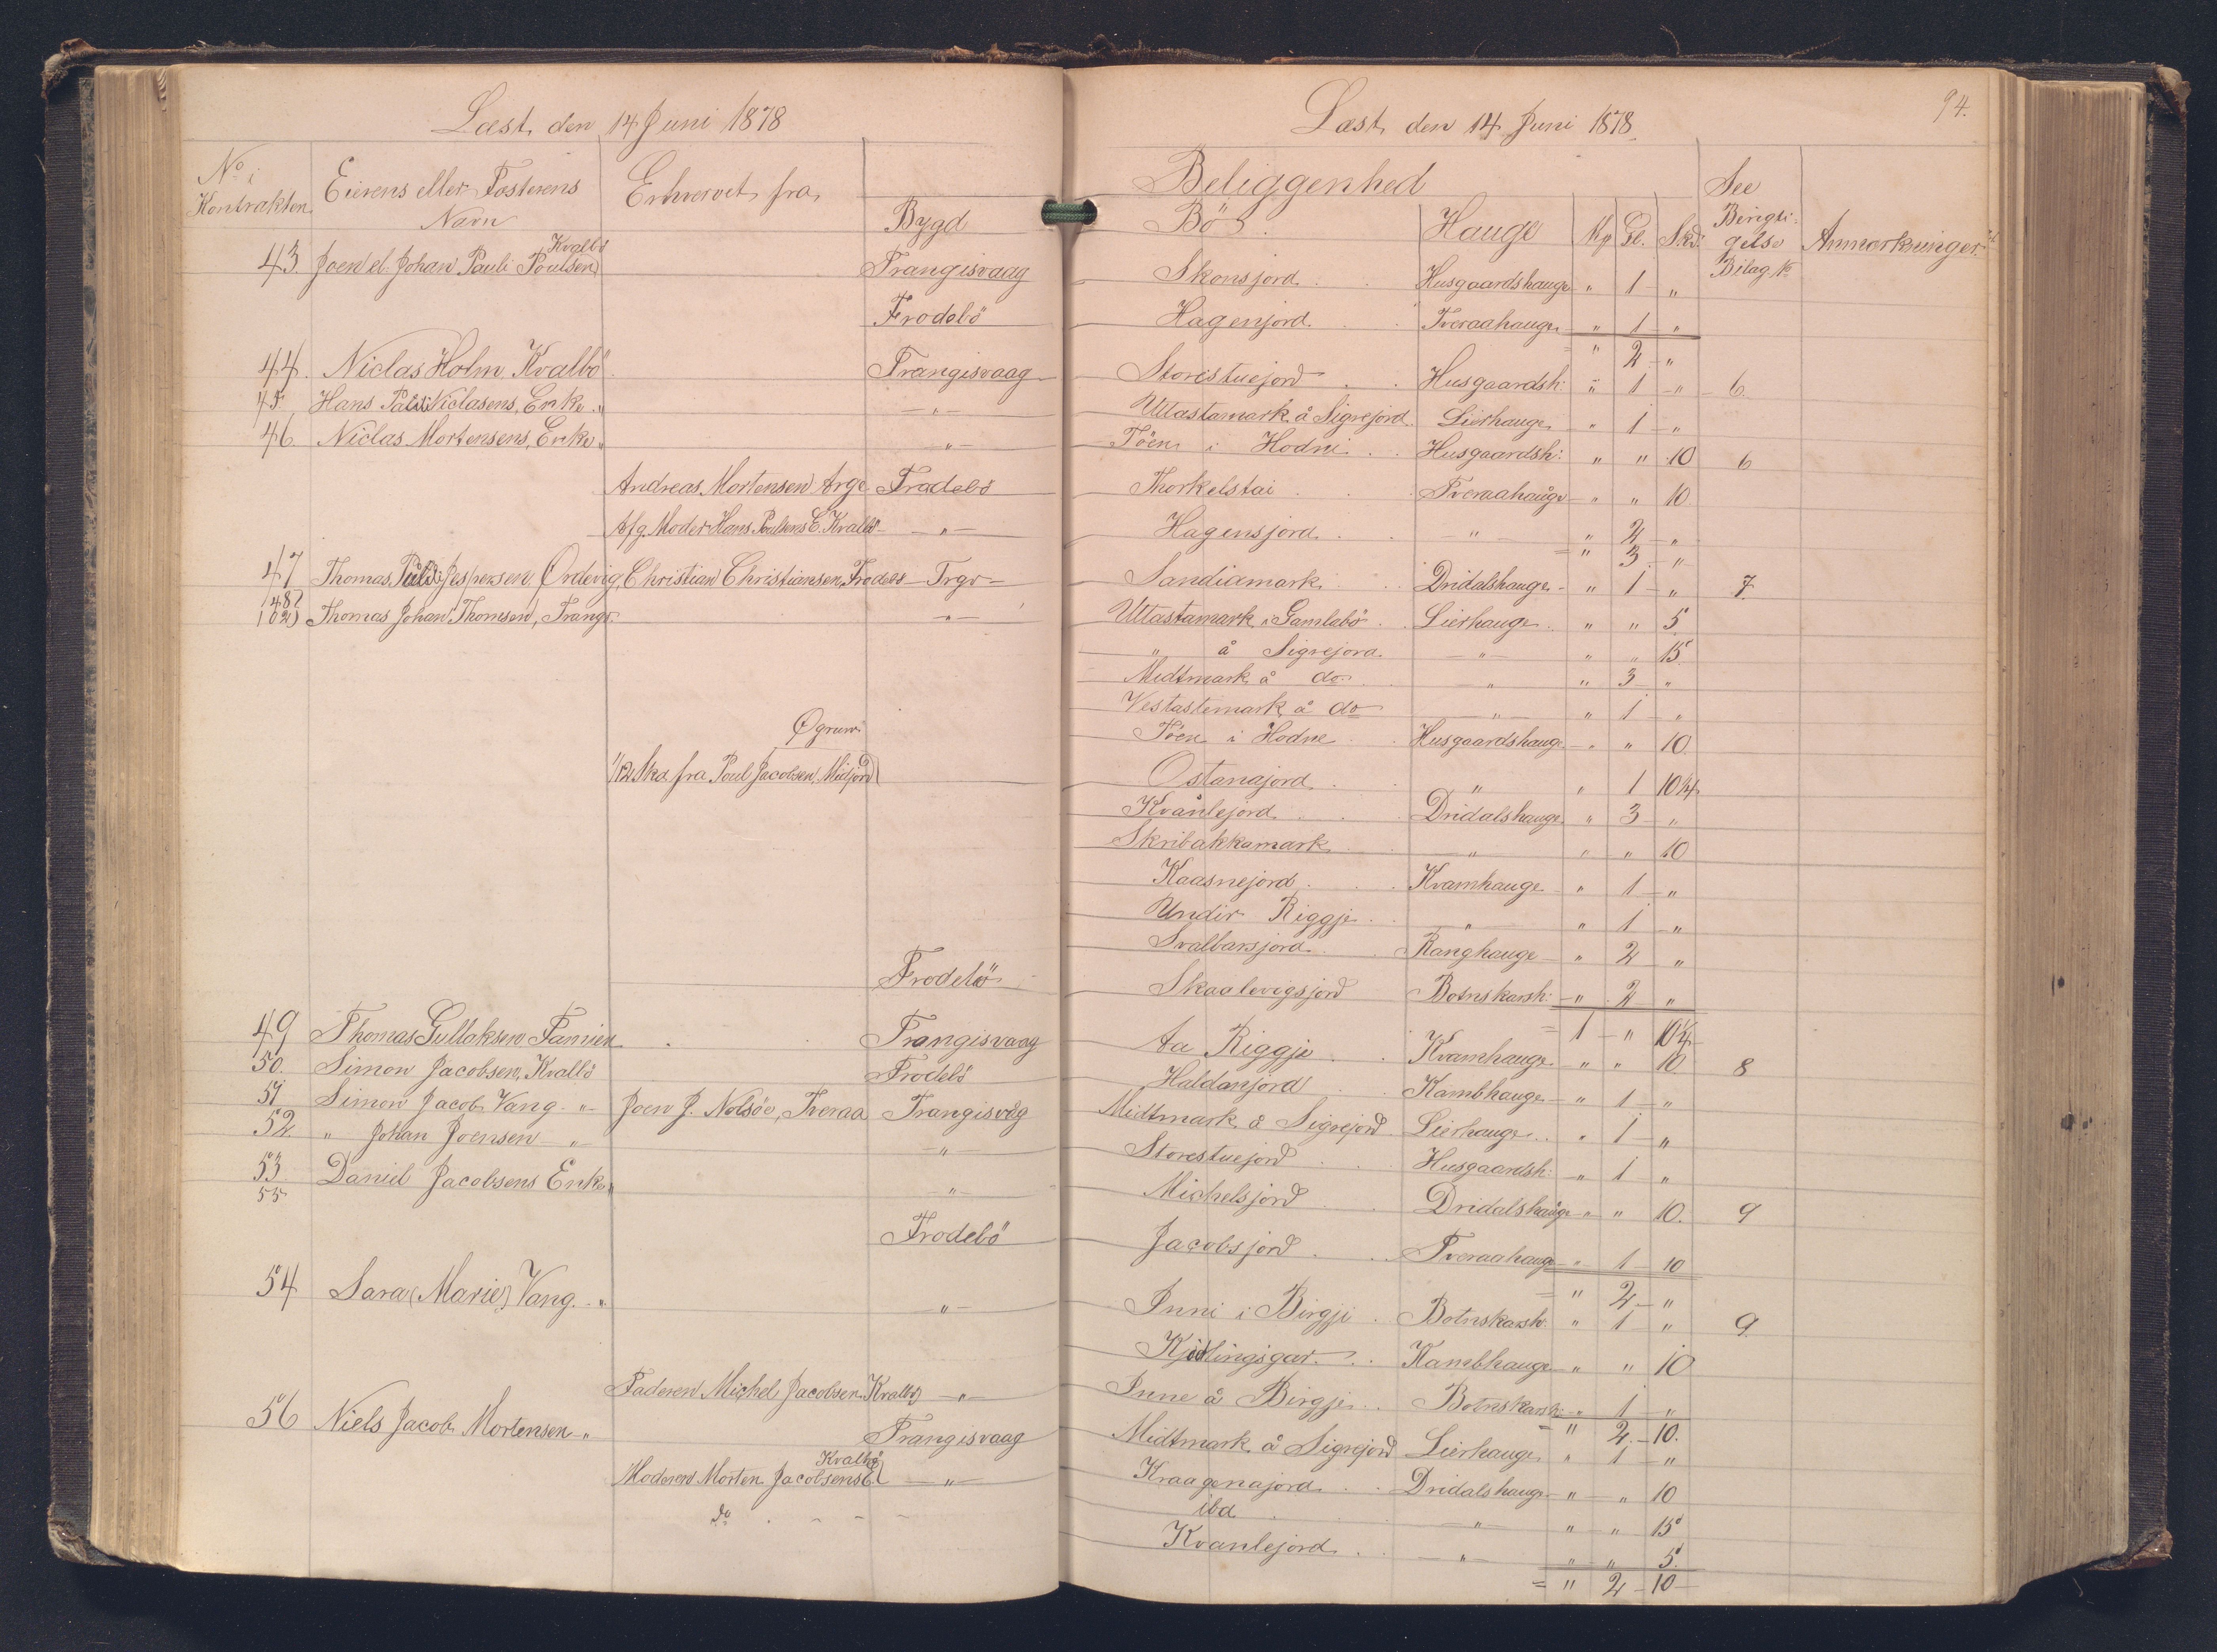 Læst den 14 Juni 1878
No i Kontrakten
Eierens eller Fæsterens Navn
Erhvervet fra
Bygd
43. Joen el. Johan Pauli Poulsen Kvalbö Trangisvaag
Frodebö
44. Niclas Holm Kvalbö Trangisvaag
45 Hans Niclasens Enke " — " —
46. Niclas Mortensens Enke " — " —
Andreas Mortensen Arge Frodebö
Afg. Moder Hans Poulsens E. Kvalbö — " —
47 Thomas Jespersen Ördevig Christian Christiansen Frodebö Trgv
48
102) Thomas Johan Thomsen, Trangv. — " —
Ögrum
1/12 Skd fra Poul Jacobsen Midjord
Frodebö
49 Thomas Gulloksen Famien Trangisvaag
50. Simon Jacobsen, Kvalbö Frodebö
51 Simon Jacob Vang — " — Joen J. Nolsöe, Tveraa Trangisvåg
52. " Johan Joensen — " — — " —
53. Daniel Jacobsens Enke " — " —
55
Frodebö
54 Sara (Marie) Vang — " — — " —
Faderen Michel Jacobsen Kvalbö — " —
56 Niels Jacob Mortensen — " Trangisvaag
Moderen Morten Jacobsens E. Kvalbö — " —
do
94.
Læst den 14 Juni 1878
Beliggenhed
Bö Hauge Mp Gl. Skd.
See Berigtigelse Bilag No
Anmærkninger
Skonsjord Husgaardshauge " 1 "
Hagenjord Tveraahauge " 1 "
= " 2 "
Storestuejord Husgaardsh: " 1 " 6.
Uttastamark å Sigrejord Lierhauge " 1 "
Töen i Hodni Husgaardsh: " " 10 6
Thorkelstai Tveraahauge " " 10
Hagensjord — " — " 2 "
= " 3 "
Sandiamark Dridalshauge " 1 " 7.
Uttastamark i Gamlebö Lierhauge " " 5
" å Sigrejord — " — " " 15
Midtmark å do — " — " 3 "
Vestastemark å do — " — " 1 "
Töen i Hodne Husgaardshauge " " 10
Ostanajord " " 1 10 1/4
Kvånlejord Dridalshauge " 3 "
Skribakkamark — " — " " 10
Kaasnejord Kvamhauge " 1 "
Undir Riggje — " — " 1 "
Svalbarsjord Ranghauge " 2 "
Skaalevigsjord Botnskarsh: " 2 "
= 1 " 10 1/4
Aa Riggje Kvamhauge " " 10 8
Haldanjord Kambhauge " 1 "
Midtmark å Sigrejord Lierhauge " 1 "
Storestuejord Husgaardsh: " 1 "
Michelsjord Dridalshauge " " 10. 9
Jacobsjord Tveraahauge " 1 10
= " 2 "
Inni i Birgji Botnskarsh: " 1 " 9.
Kambhauge " " 10
Inne å Birgje Botnskarsh: " 1 "
= " 2 10.
Midtmark å Sigrejord Lierhauge " 1 "
Kraagenajord Dridalshauge " " 10
ibd — " — " " 15
Kvanlejord — " — " " 5.
= " 2 10